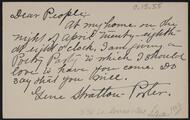 Dear People:
At my home on the
night of April twenty-eighth
at eight o'clock, I am giving a
Poetry Party to which I should
love to have you come. Do
say that you will.
Gene Stratton-Porter.